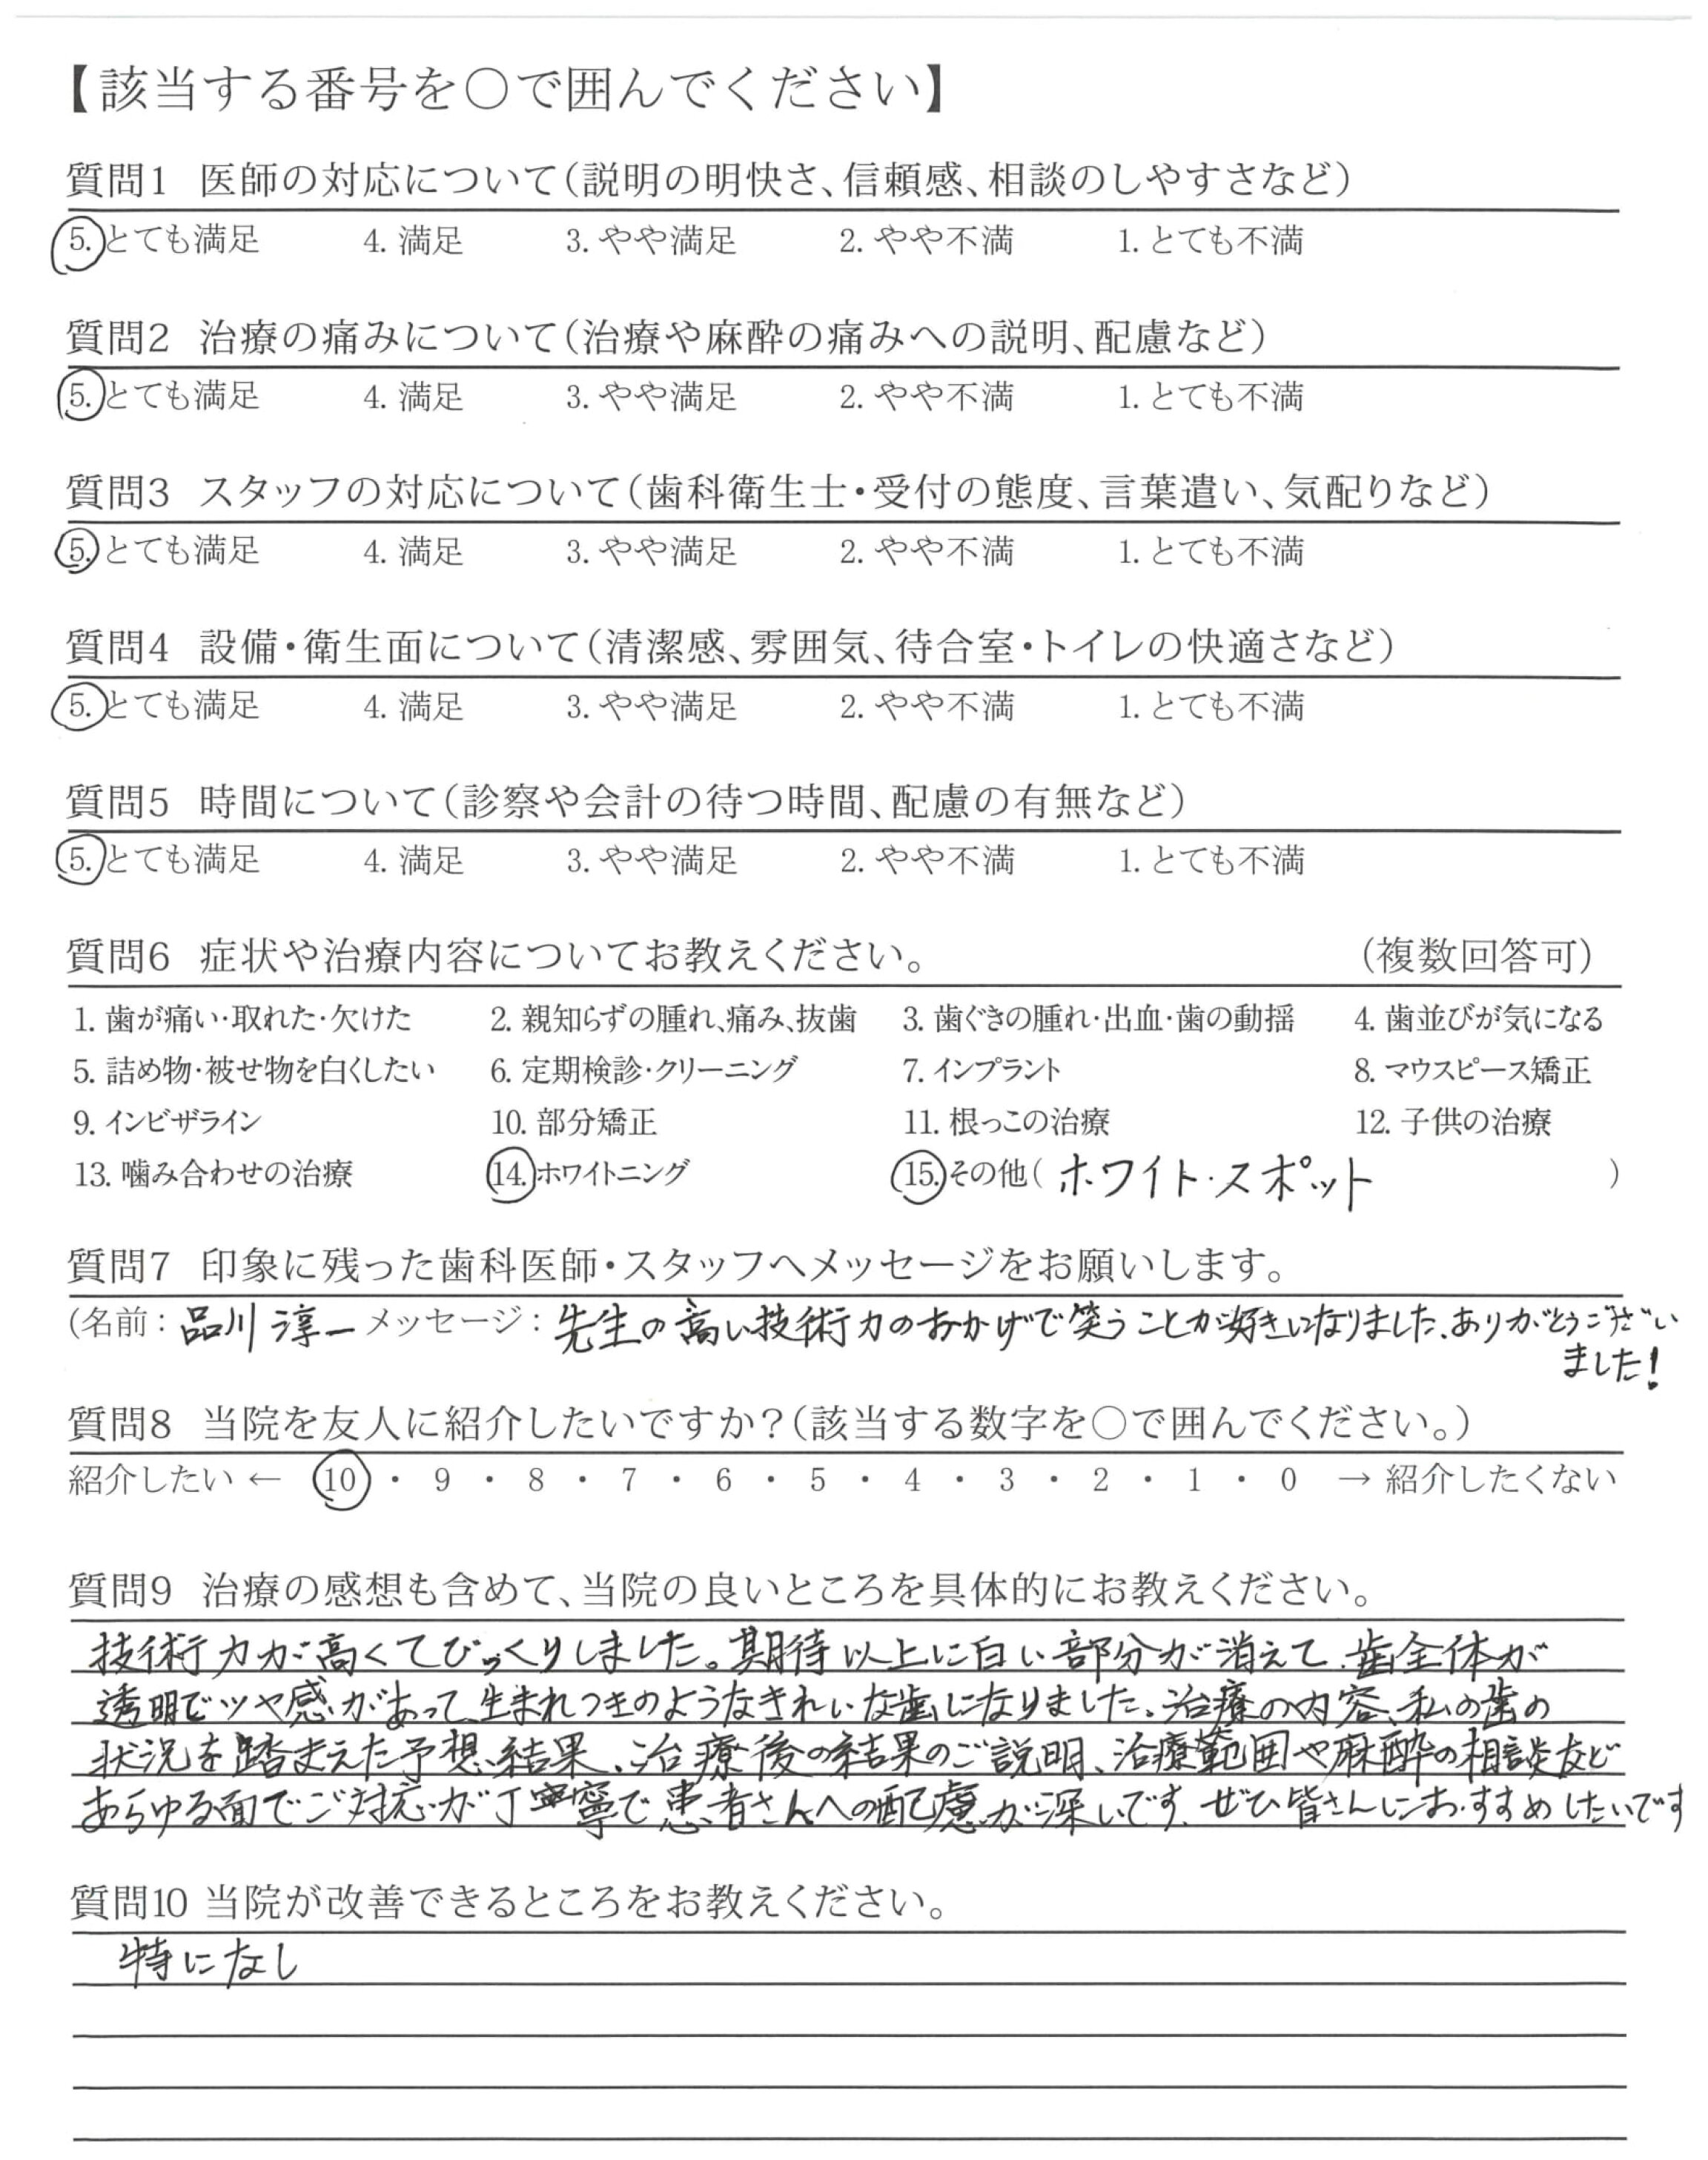 【該当する番号を〇で囲んでください】
質問1 医師の対応について（説明の明快さ、信頼感、相談のしやすさなど）
5. とても満足 4. 満足 3. やや満足 2. やや不満 1. とても不満
質問2 治療の痛みについて（治療や麻酔の痛みへの説明、配慮など）
5. とても満足 4. 満足 3. やや満足 2. やや不満 1. とても不満
質問3 スタッフの対応について（歯科衛生士・受付の態度、言葉遣い、気配りなど）
5. とても満足 4. 満足 3. やや満足 2. やや不満 1. とても不満
質問4 設備・衛生面について（清潔感、雰囲気、待合室・トイレの快適さなど）
5. とても満足 4. 満足 3. やや満足 2. やや不満 1. とても不満
質問5 時間について（診察や会計の待つ時間、配慮の有無など）
5. とても満足 4. 満足 3. やや満足 2. やや不満 1. とても不満
質問6 症状や治療内容についてお教えください。 （複数回答可）
1. 歯が痛い・取れた・欠けた 2. 親知らずの腫れ、痛み、抜歯 3. 歯ぐきの腫れ・出血・歯の動揺 4. 歯並びが気になる
5. 詰め物・被せ物を白くしたい 6. 定期検診・クリーニング 7. インプラント 8. マウスピース矯正
9. インビザライン 10. 部分矯正 11. 根っこの治療 12. 子供の治療
13. 噛み合わせの治療 14. ホワイトニング 15. その他（ ホワイト・スポット ）
質問7 印象に残った歯科医師・スタッフへメッセージをお願いします。
（名前：品川 淳一 メッセージ：先生の高い技術力のおかげで笑うことが好きになりました、ありがとうござい
ました!
質問8 当院を友人に紹介したいですか？（該当する数字を〇で囲んでください。）
紹介したい ← 10 ・ 9 ・ 8 ・ 7 ・ 6 ・ 5 ・ 4 ・ 3 ・ 2 ・ 1 ・ 0 → 紹介したくない
質問9 治療の感想も含めて、当院の良いところを具体的にお教えください。
技術力が高くてびっくりしました。期待以上に白い部分が消えて、歯全体が
透明でツヤ感があって、生まれつきのようなきれいな歯になりました。治療の内容、私の歯の
状況を踏まえた予想結果、治療後の結果のご説明、治療範囲や麻酔の相談など
あらゆる面でご対応が丁寧で患者さんへの配慮が深いです、ぜひ皆さんにおすすめしたいです
質問10 当院が改善できるところをお教えください。
特になし